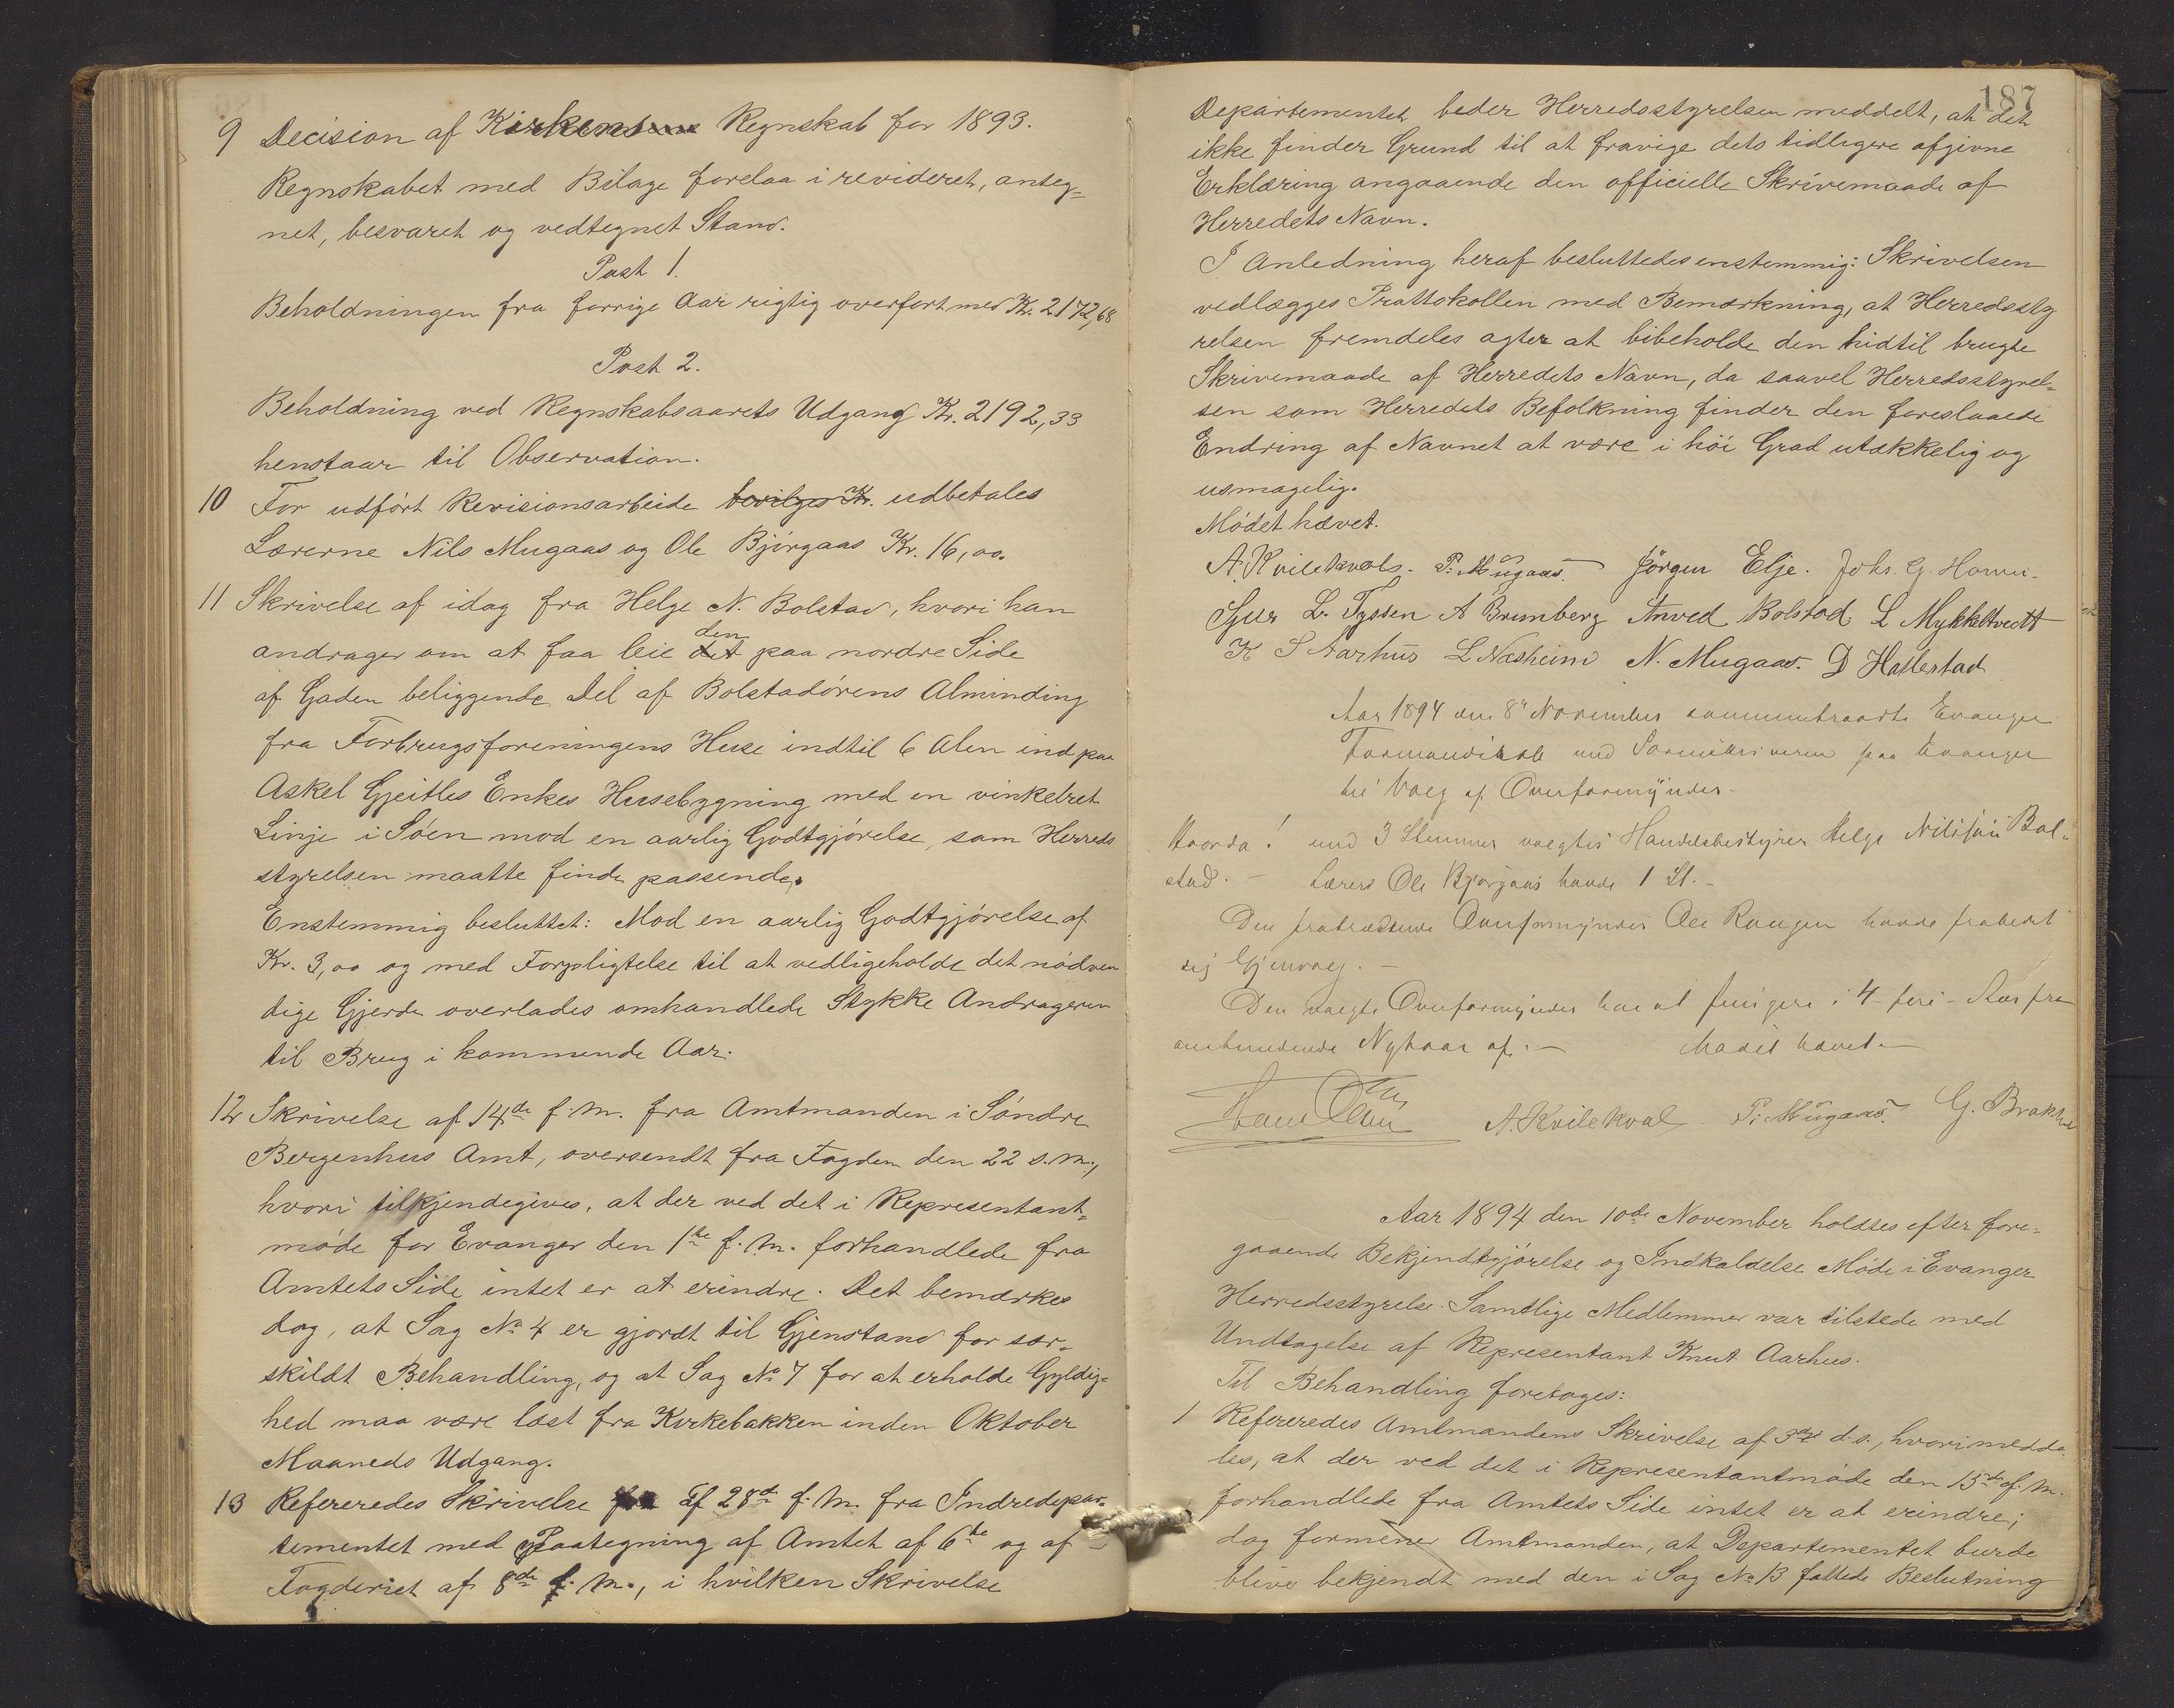 9 Decision af Kirkens Regnskab for 1893.
Regnskabet med Bilage forelaa i revideret, anteg=
net, besvaret og vedtegnet Stand.
Post 1.
Beholdningen fra forrige Aar rigtig overført med Kr. 2172,68
Post 2.
Beholdning ved Regnskabsaarets Udgang Kr. 2192,33
henstaar til Observation.
10 For udført Revisionsarbeide bevilges Kr. udbetales
Lærerne Nils Mugaas og Ole Bjørgaas Kr. 16,00.
11 Skrivelse af idag fra Helge N. Bolstad, hvori han
den
andrager om at faa leie det paa nordre Side
af Gaden beliggende Del af Bolstadørens Alminding
fra Forbrugsforeningens Huse indtil 6 Alen ind paa
Askel Gjeitles Enkes Husebygning med en vinkelret
Linje i Søen mod en aarlig Godtgjørelse, som Herreds
styrelsen maatte finde passende.
Enstemmig besluttet: Mod en aarlig Godtgjørelse af
Kr. 3,00 og med Forpligtelse til at vedligeholde det nødven
dige Gjerde overlades omhandlede Stykke Andrageren
til Brug i kommende Aar.
12 Skrivelse af 14de f. M. fra Amtmanden i Søndre
Bergenhus Amt, oversendt fra Fogden den 22 s. M.,
hvori tilkjendegives, at der ved det i Representant=
møde for Evanger den 1ste f. M. forhandlede fra
Amtets Side intet er at erindre. Det bemærkes
dog, at Sag No 4 er gjordt til Gjenstand for sær=
skildt Behandling, og at Sag No 7 for at erholde Gyldig=
hed maa være læst fra Kirkebakken inden Oktober
Maaneds Udgang.
13 Refereredes Skrivelse af 28de f. M. fra Indredepar=
tementet med Paategning af Amtet af 6te og af
Fogderiet af 8de f. M., i hvilken Skrivelse
187
Departementet beder Herredsstyrelsen meddelt, at det
ikke finder Grund til at fravige dets tidligere afgivne
Erklæring angaaende den officielle Skrivemaade af
Herredets Navn.
I Anledning heraf besluttedes enstemmig: Skrivelsen
vedlægges Prottokollen med Bemærkning, at Herredssty
relsen fremdeles agter at bibeholde den hidtil brugte
Skrivemaade af Herredets Navn, da saavel Herredsstyrel=
sen som Herredets Befolkning finder den foreslaaede
Endring af Navnet at være i høi Grad utækkelig og
usmagelig.
Mødet hævet.
A. Kvilekvals. P. Mugaas. Jørgen Elje. Johs. G. Horvei.
Sjur L. Tyssen A Brunberg Anved Bolstad L Mykkeltvedt
K S Aarhus L Næsheim N. Mugaas. D Hallestad
Aar 1894 den 8de November sammentraadte Evanger
Formandskab med Sorenskriveren paa Evanger
til Valg af Overformynder.
Hvorda! med 3 Stemmer valgtes Handelsbestyrer Helge Nilssøn Bol=
stad. – Lærer Ole Bjørgaas havde 1 St. –
Den fratrædende Overformynder Ole Rongen havde frabedt
sig Gjenvalg. –
Den valgte Overformynder har at fungere i 4 – fire – Aar fra
anstundende Nytaar af. – Mødet hævet. –
A. Kvilekval P. Mugaas. G. Brakhe
Aar 1894 den 10de November holdtes efter fore=
gaaende Bekjendtgjørelse og Indkaldelse Møde i Evanger
Herredsstyrelse. Samtlige Medlemmer var tilstede med
Undtagelse af Representant Knut Aarhus.
Til Behandling foretoges:
1 Refereredes Amtmandens Skrivelse af 3die d. s., hvori medde
les, at der ved det i Representantmøde den 15de f. M.
forhandlede fra Amtets Side intet er at erindre;
dog formener Amtmanden, at Departementet burde
blive bekjendt med den i Sag No 13 fattede Beslutning